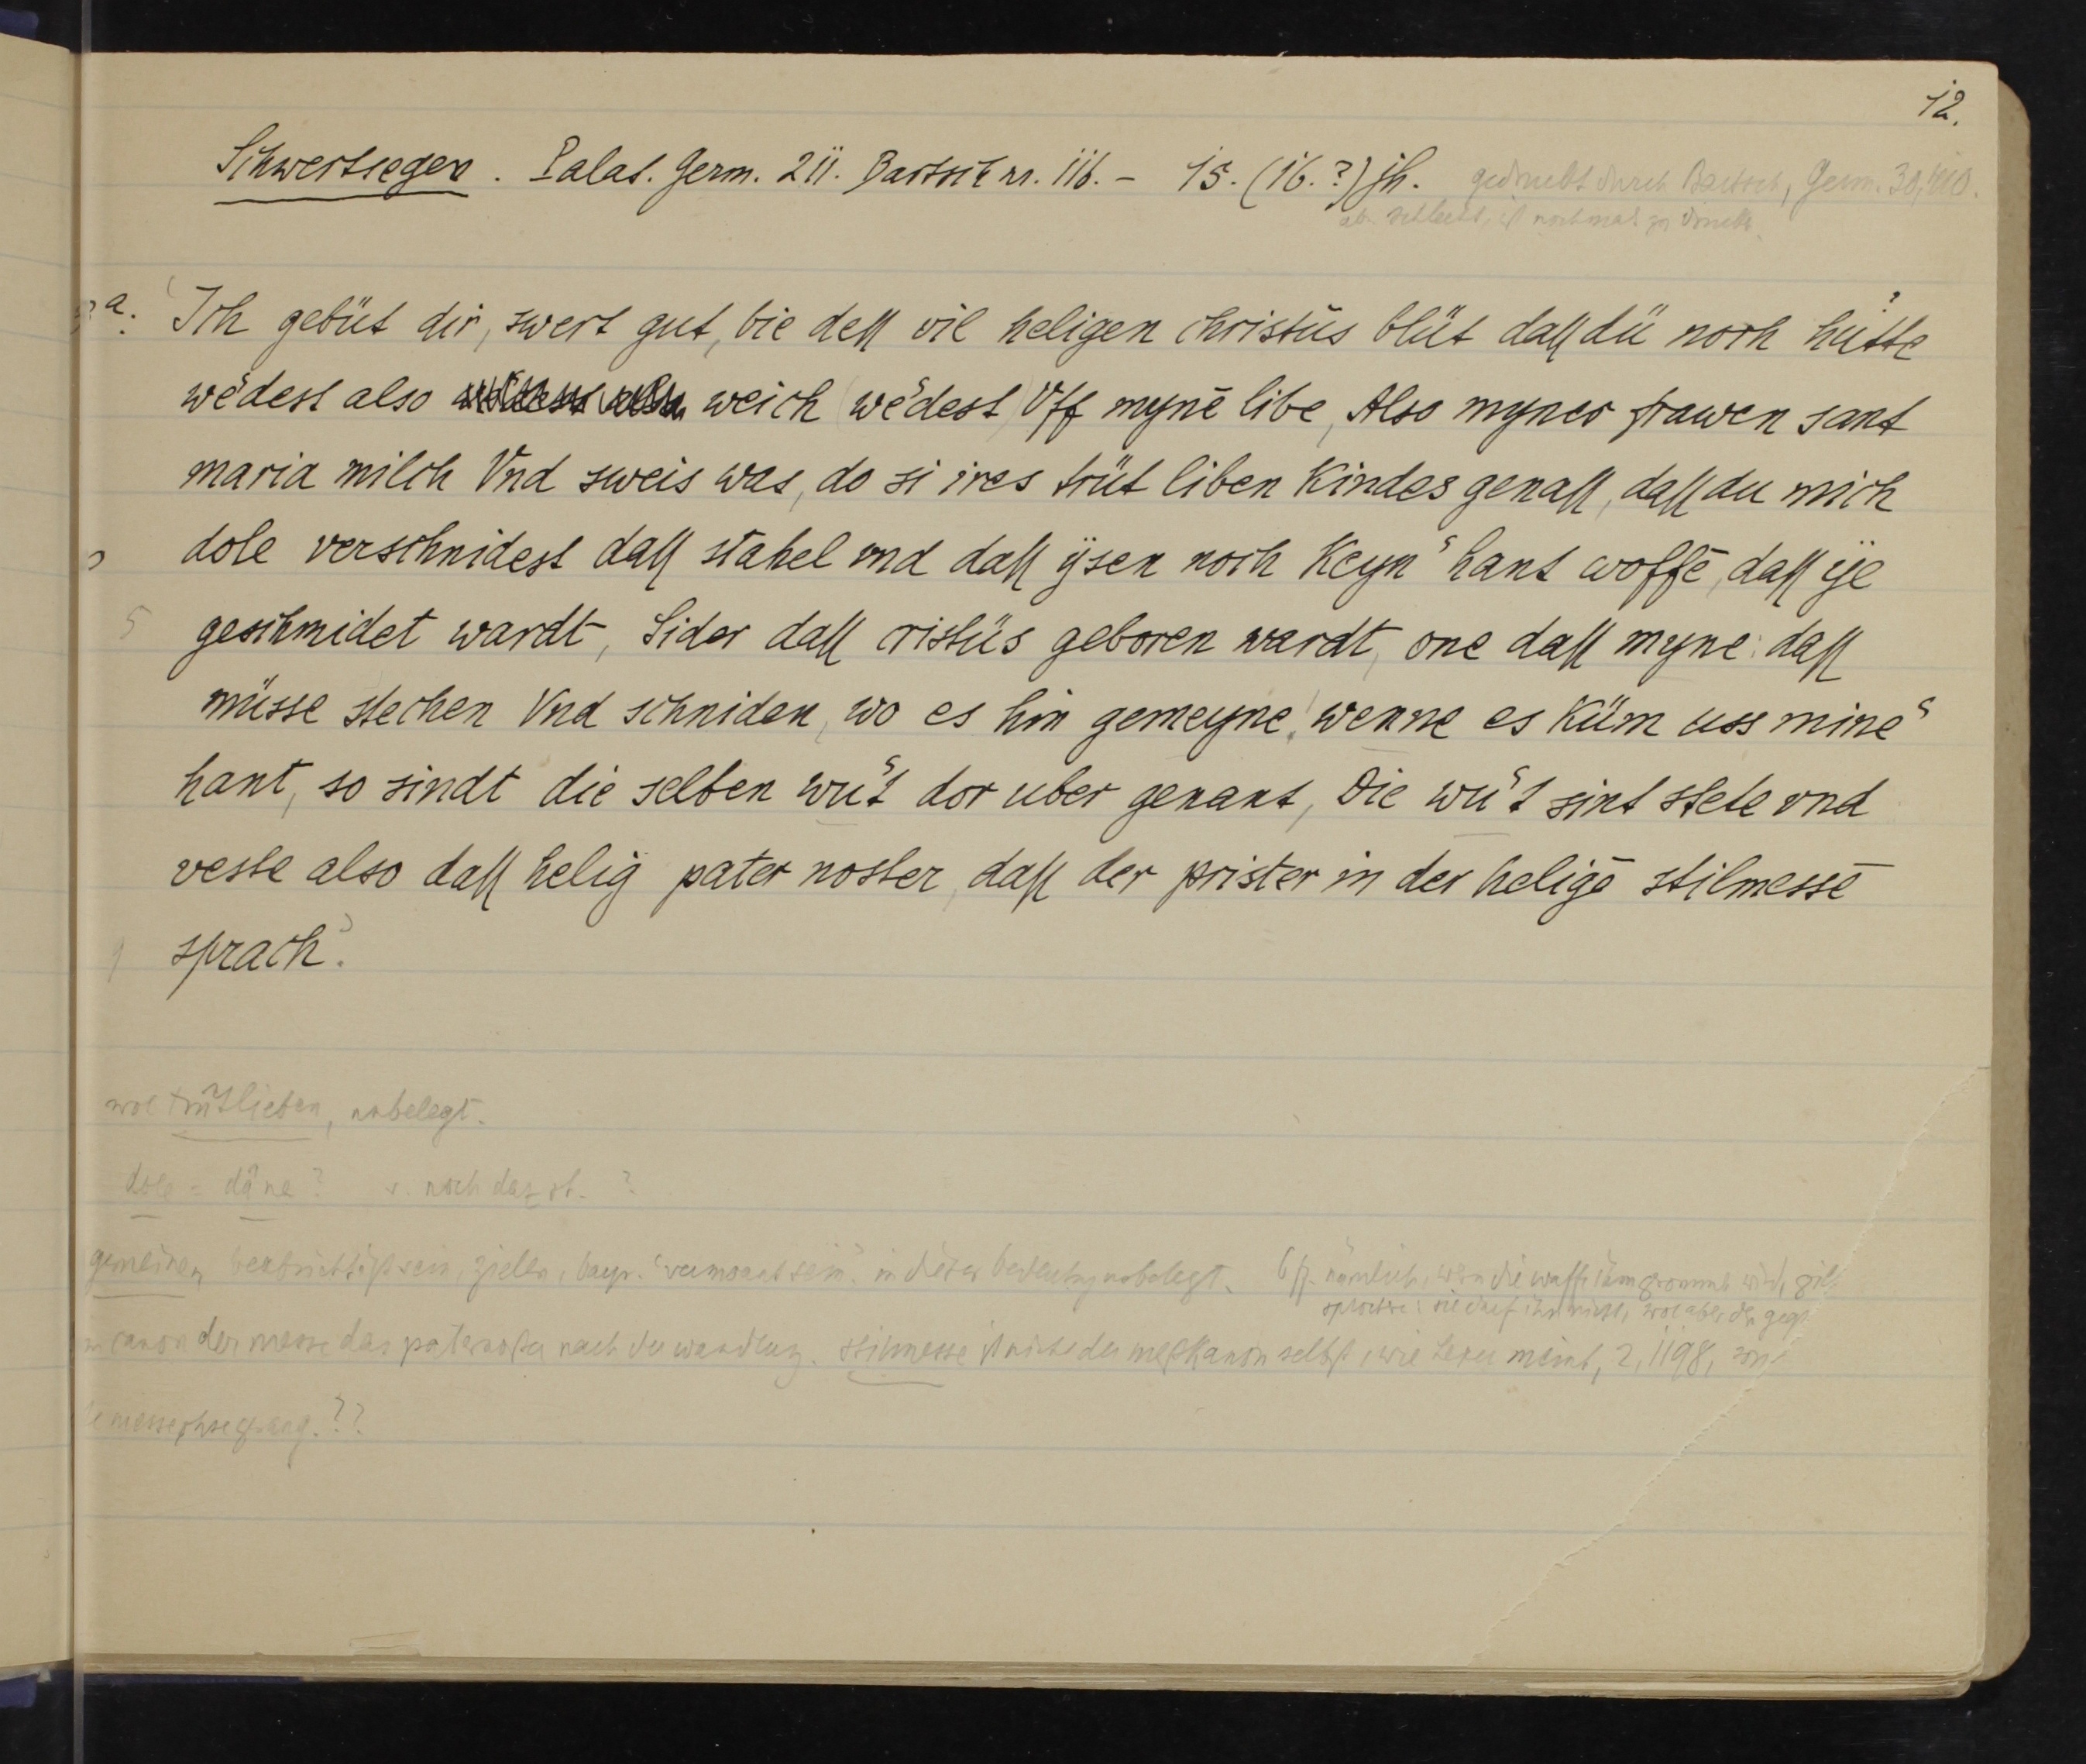 12.
Schwertsegen. Palat. Germ. 211. Bartsch nr. 116. - 15. (16.?) jh. gedruckt durch Bartsch, Germ. 30,
ist nochmal zu
a. Ich gebüt dir, swert gut, bie deß vil heligen christus blüt daß dü noch hütte
wedest also weich (wedest) Vff mynē libe, Also myner frawen sant
maria milch Vnd sweis was, do si ires trüt liben Kindes genaß, daß du mich
dole verschnidest daß stahel vnd daß ÿsen noch Keyn hant woffē, daß ÿe
5 geschmidet wardt, Sider daß cristüs geboren wardt, one daß myne: daß
müsse stechen Vnd schniden, wo es hin gemeyne! wenne es Küm uss mine
hant, so sindt die selben wut dor uber genant, Die wut sint stete vnd
veste also daß helig pater noster, daß der prister in der heligē stilmessē
sprach.
wol trûtlieben, unbelegt.
dole = dâne? noch daz st. ?
gemeinen beabsichtigt sein, zielen, in dieser bedeutung unbelegt. 6 ff. nämlich, wenn die waffe ihm genommen wird,
wol aber den
canon der messe das paternoster nach der wandlung. stilmesse ist nicht der meßkanon selbst, wie Lexer meint, 2, 1198,
??